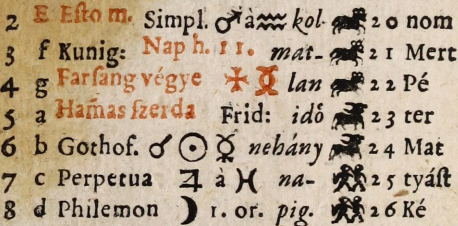 2 E Eſto m. Simpl. ♂ à ♒ kol- 20 nom
3 f Kunig: Nap h. 11. mat- 21 Mert
4 g Farſang végye ☿ lan 22 Pé
5 a Ham̃as ſzerda Frid: idő 23 ter
6 b Gothof. ☌ ☉ ☿ nehány 24 Mat
7 c Perpetua ♃ à ♓ na- 25 tyáſt
8 d Philemon ☽ 1. or. pig. 26 Ké